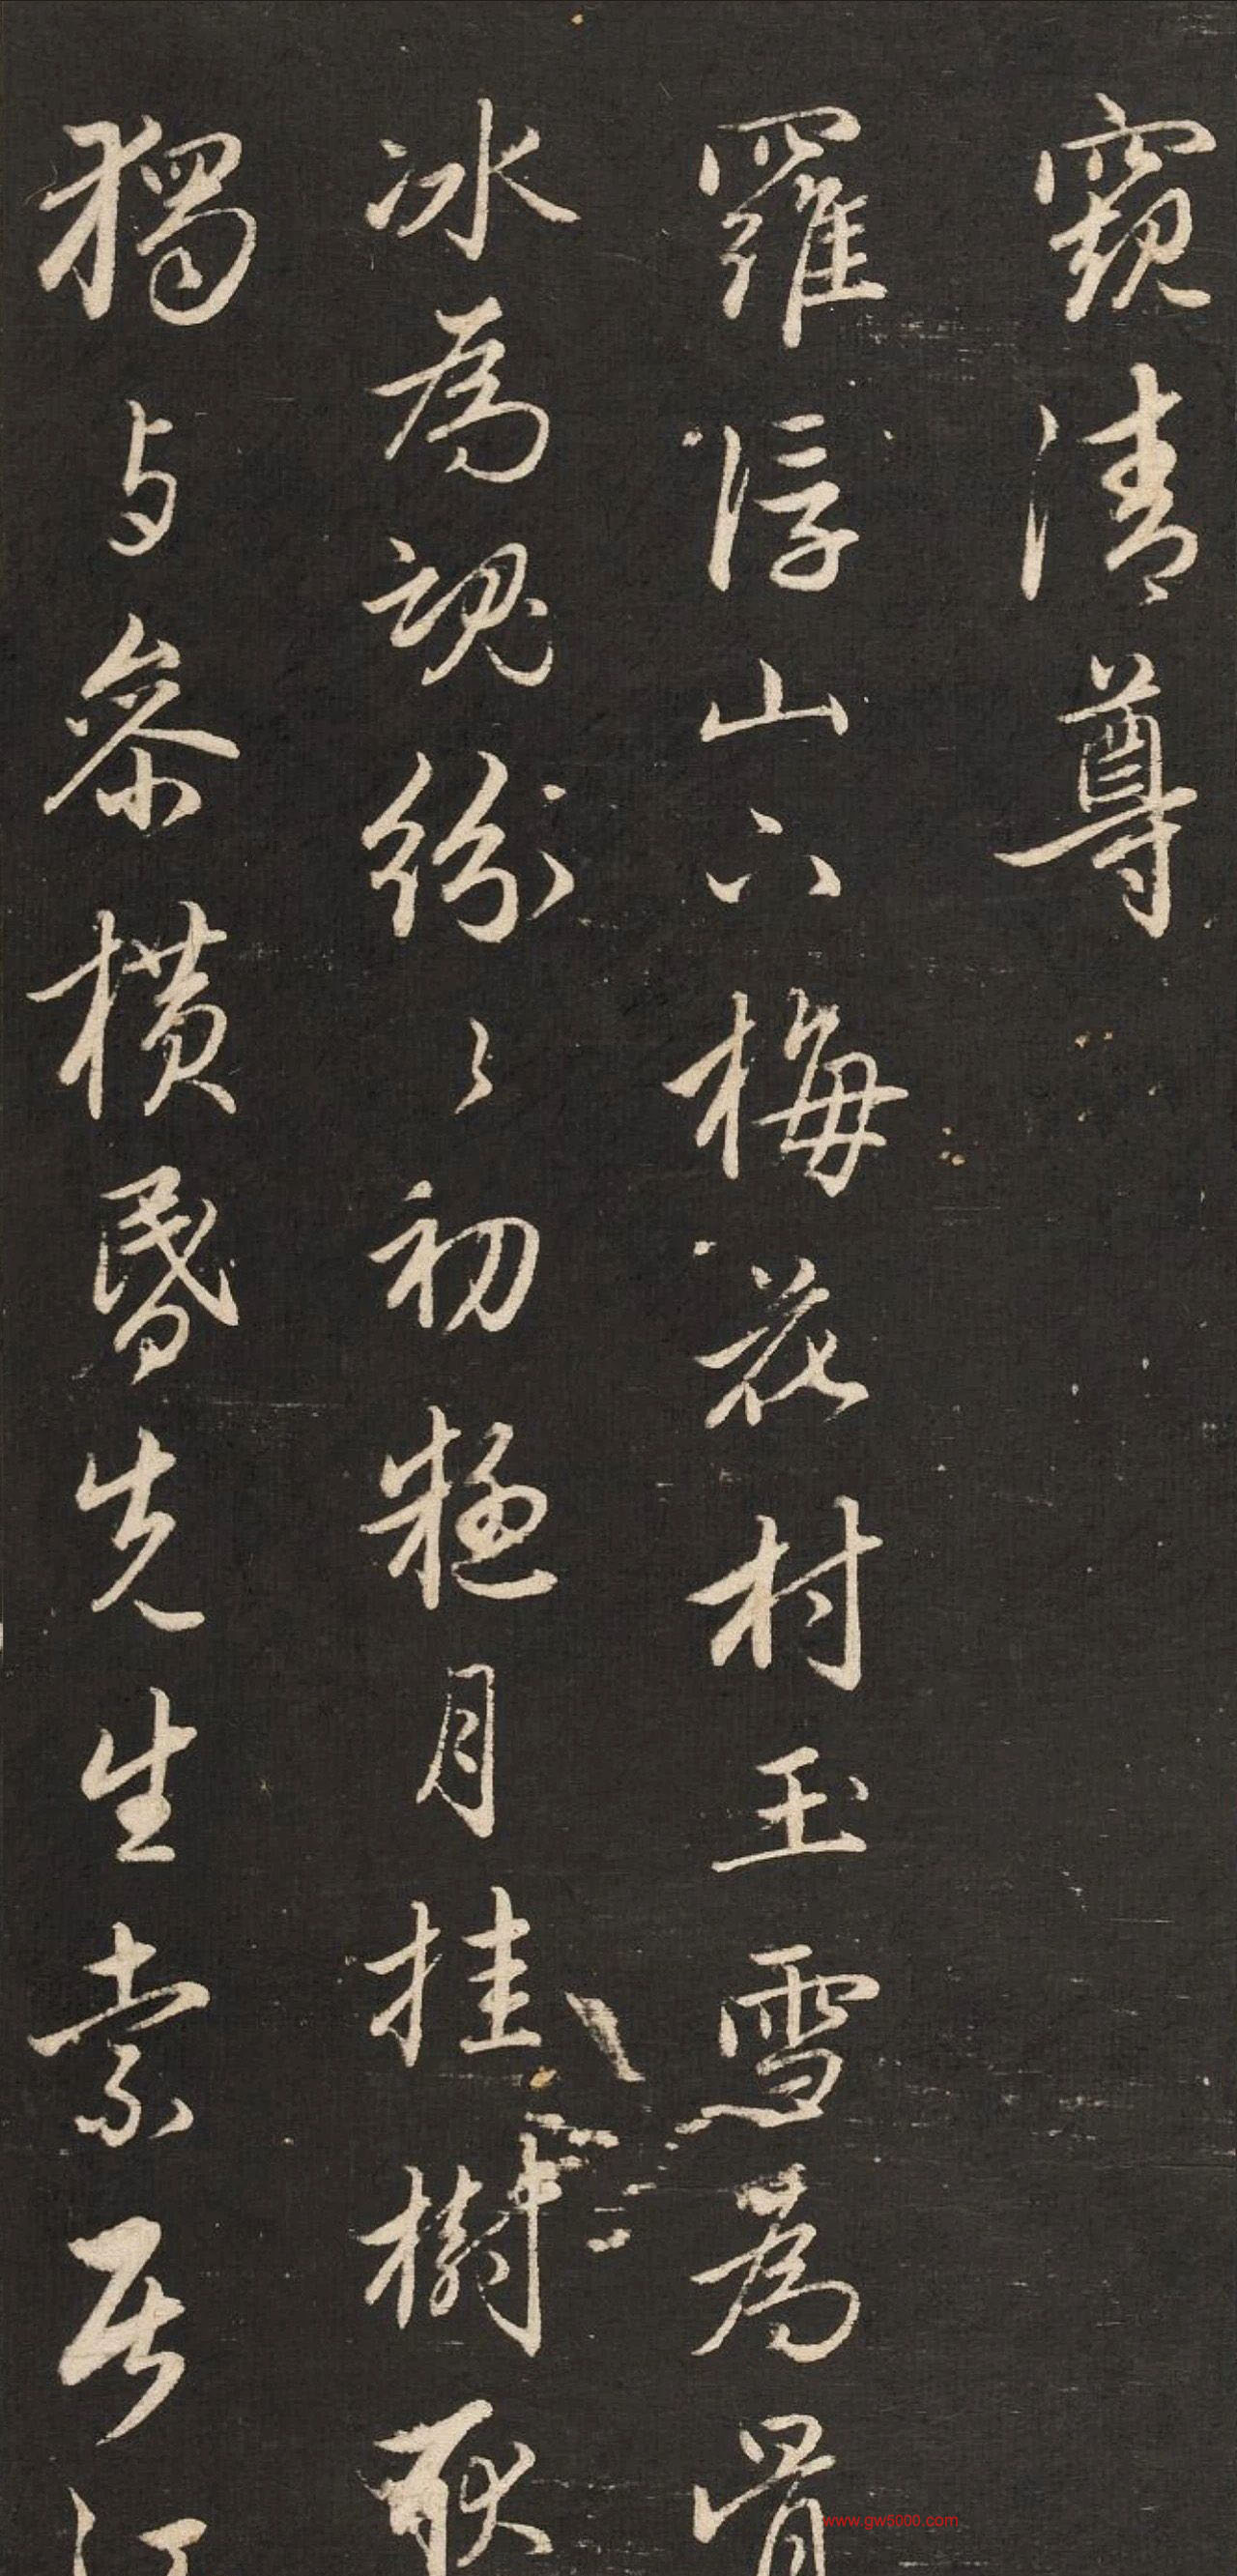 窺清尊
羅浮山下梅花村玉雪為骨
冰為魂紛〻初疑月挂樹耿
獨与參橫昏先生索居江
www.gw5000.com